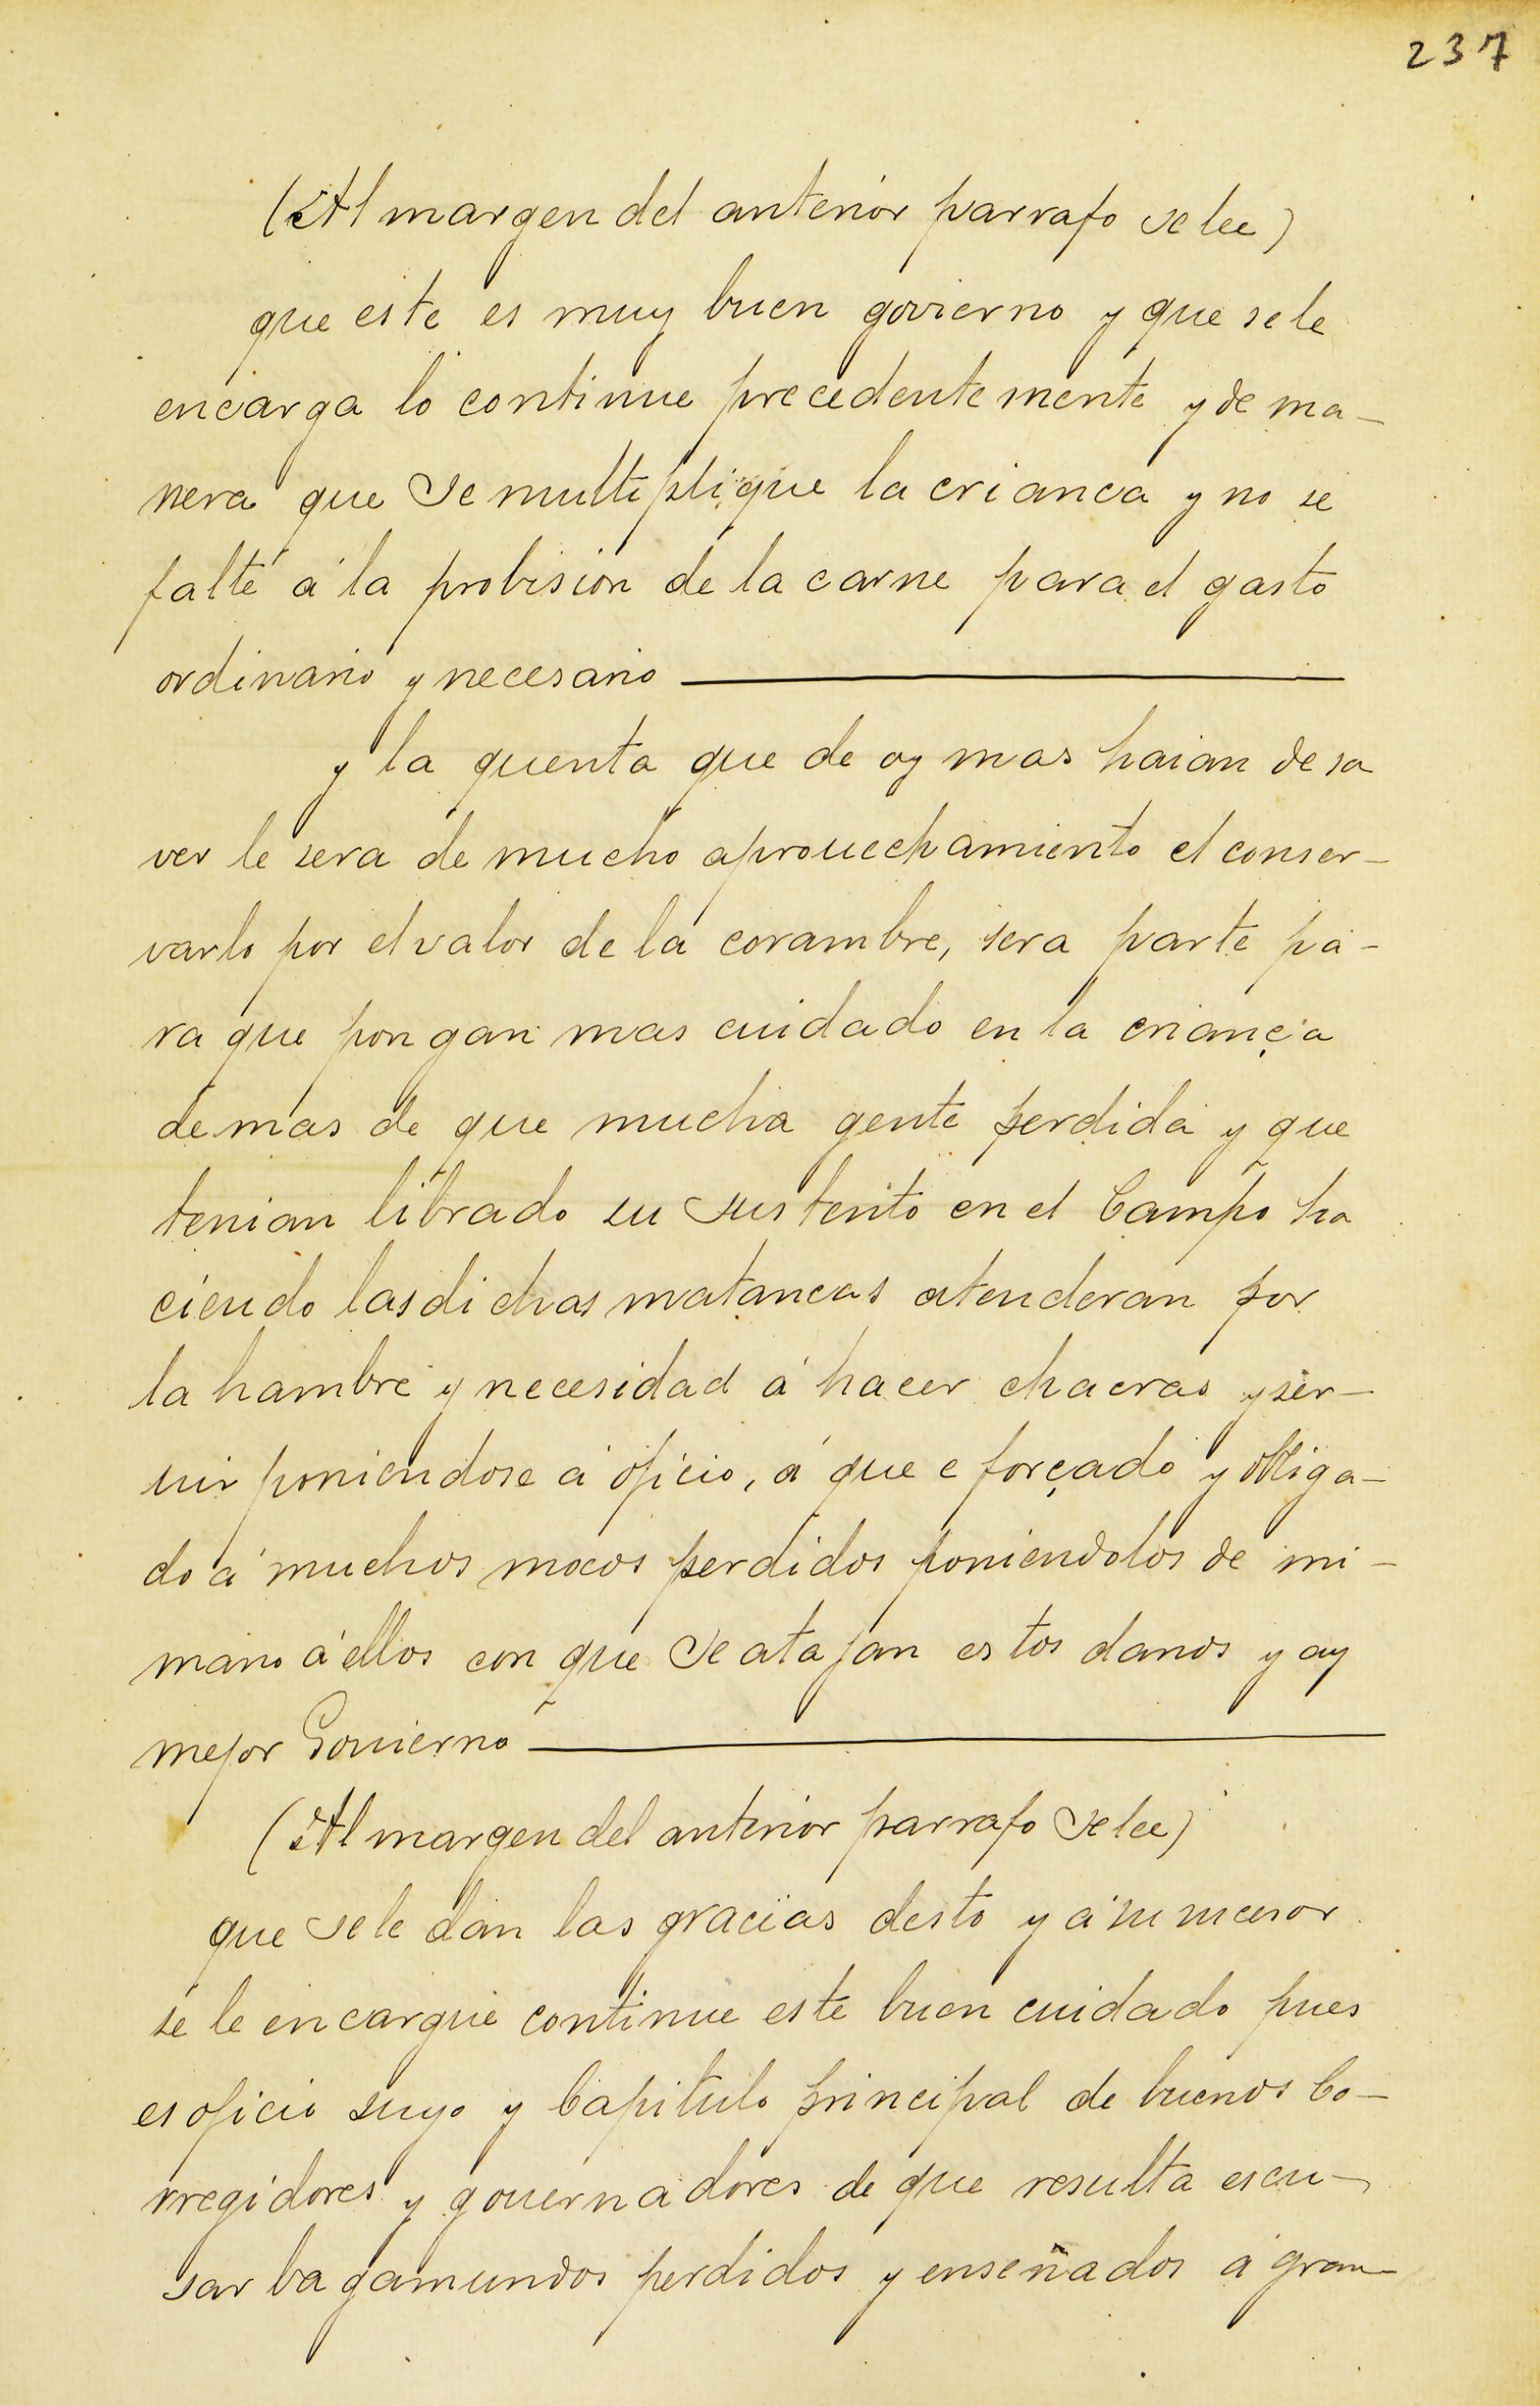 237
(Al margen del anterior parrafo se lee)
que este es muy buen govierno y que se le
encarga lo continue precedentemente y de ma-
nera que se multiplique la crianca y no se
falte á la probision de la carne para el gasto
ordinario y necesario
y la quenta que de oy mas haian de sa
ver le sera de mucho aprouechamiento el conser-
varlo por el valor de la corambre, sera parte pa-
ra que pongan mas cuidado en la criança
demas de que mucha gente perdida y que
tenian librado su sustento en el Campo ha
ciendo las dichas matancas atenderan por
la hambre y necesidad á hacer chacras y ser-
uir poniendose á oficio, á que e forçado y obliga-
do á muchos mocos perdidos poniendolos de mi-
mano á ellos con que se atajan estos danos y ay
mejor Gouierno
(Al margen del anterior parrafo se lee)
que se le dan las gracias desto y á su sucesor
se le encargue continue este buen cuidado pues
es oficio suyo y Capitulo principal de buenos Co-
rregidores y gouernadores de que resulta escu-
sar bagamundos perdidos y enseñados á gran-